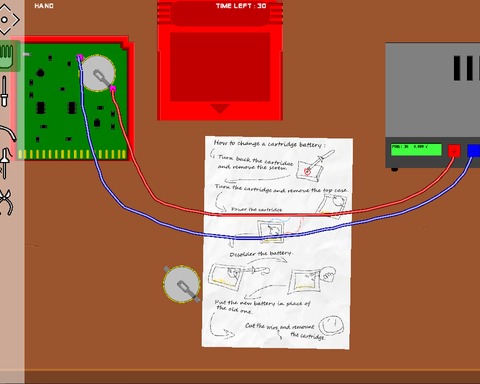 HAND
TIME LEFT : 30
How to change a cartridge battery :
Turn back the cartridge
and remove the screw.
Turn the cartridge and remove the top case.
Power the cartridge
Desolder the battery.
Put the new battery in place of
the old one.
Cut the wire and remount
the cartridge.